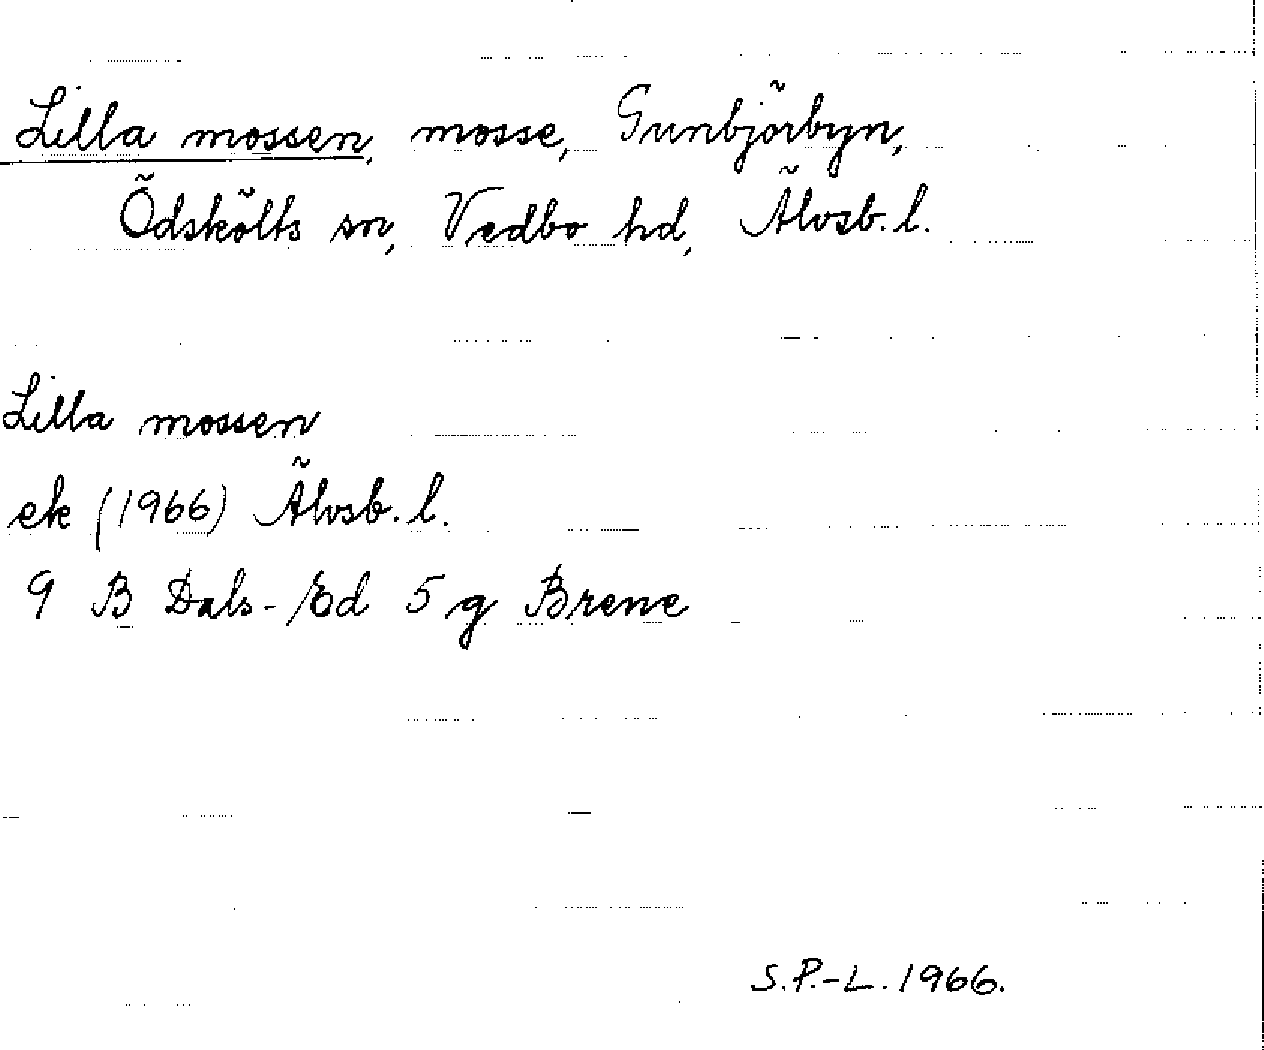 Lilla mossen, mosse, Gunbjörbyn,
Ödskölts sn, Vedbo hd, Älvsb. l.
Lilla mossen
ek (1966) Älvsb. l.
9 B Dals-Ed 5 g Brene
S.P.-L. 1966.